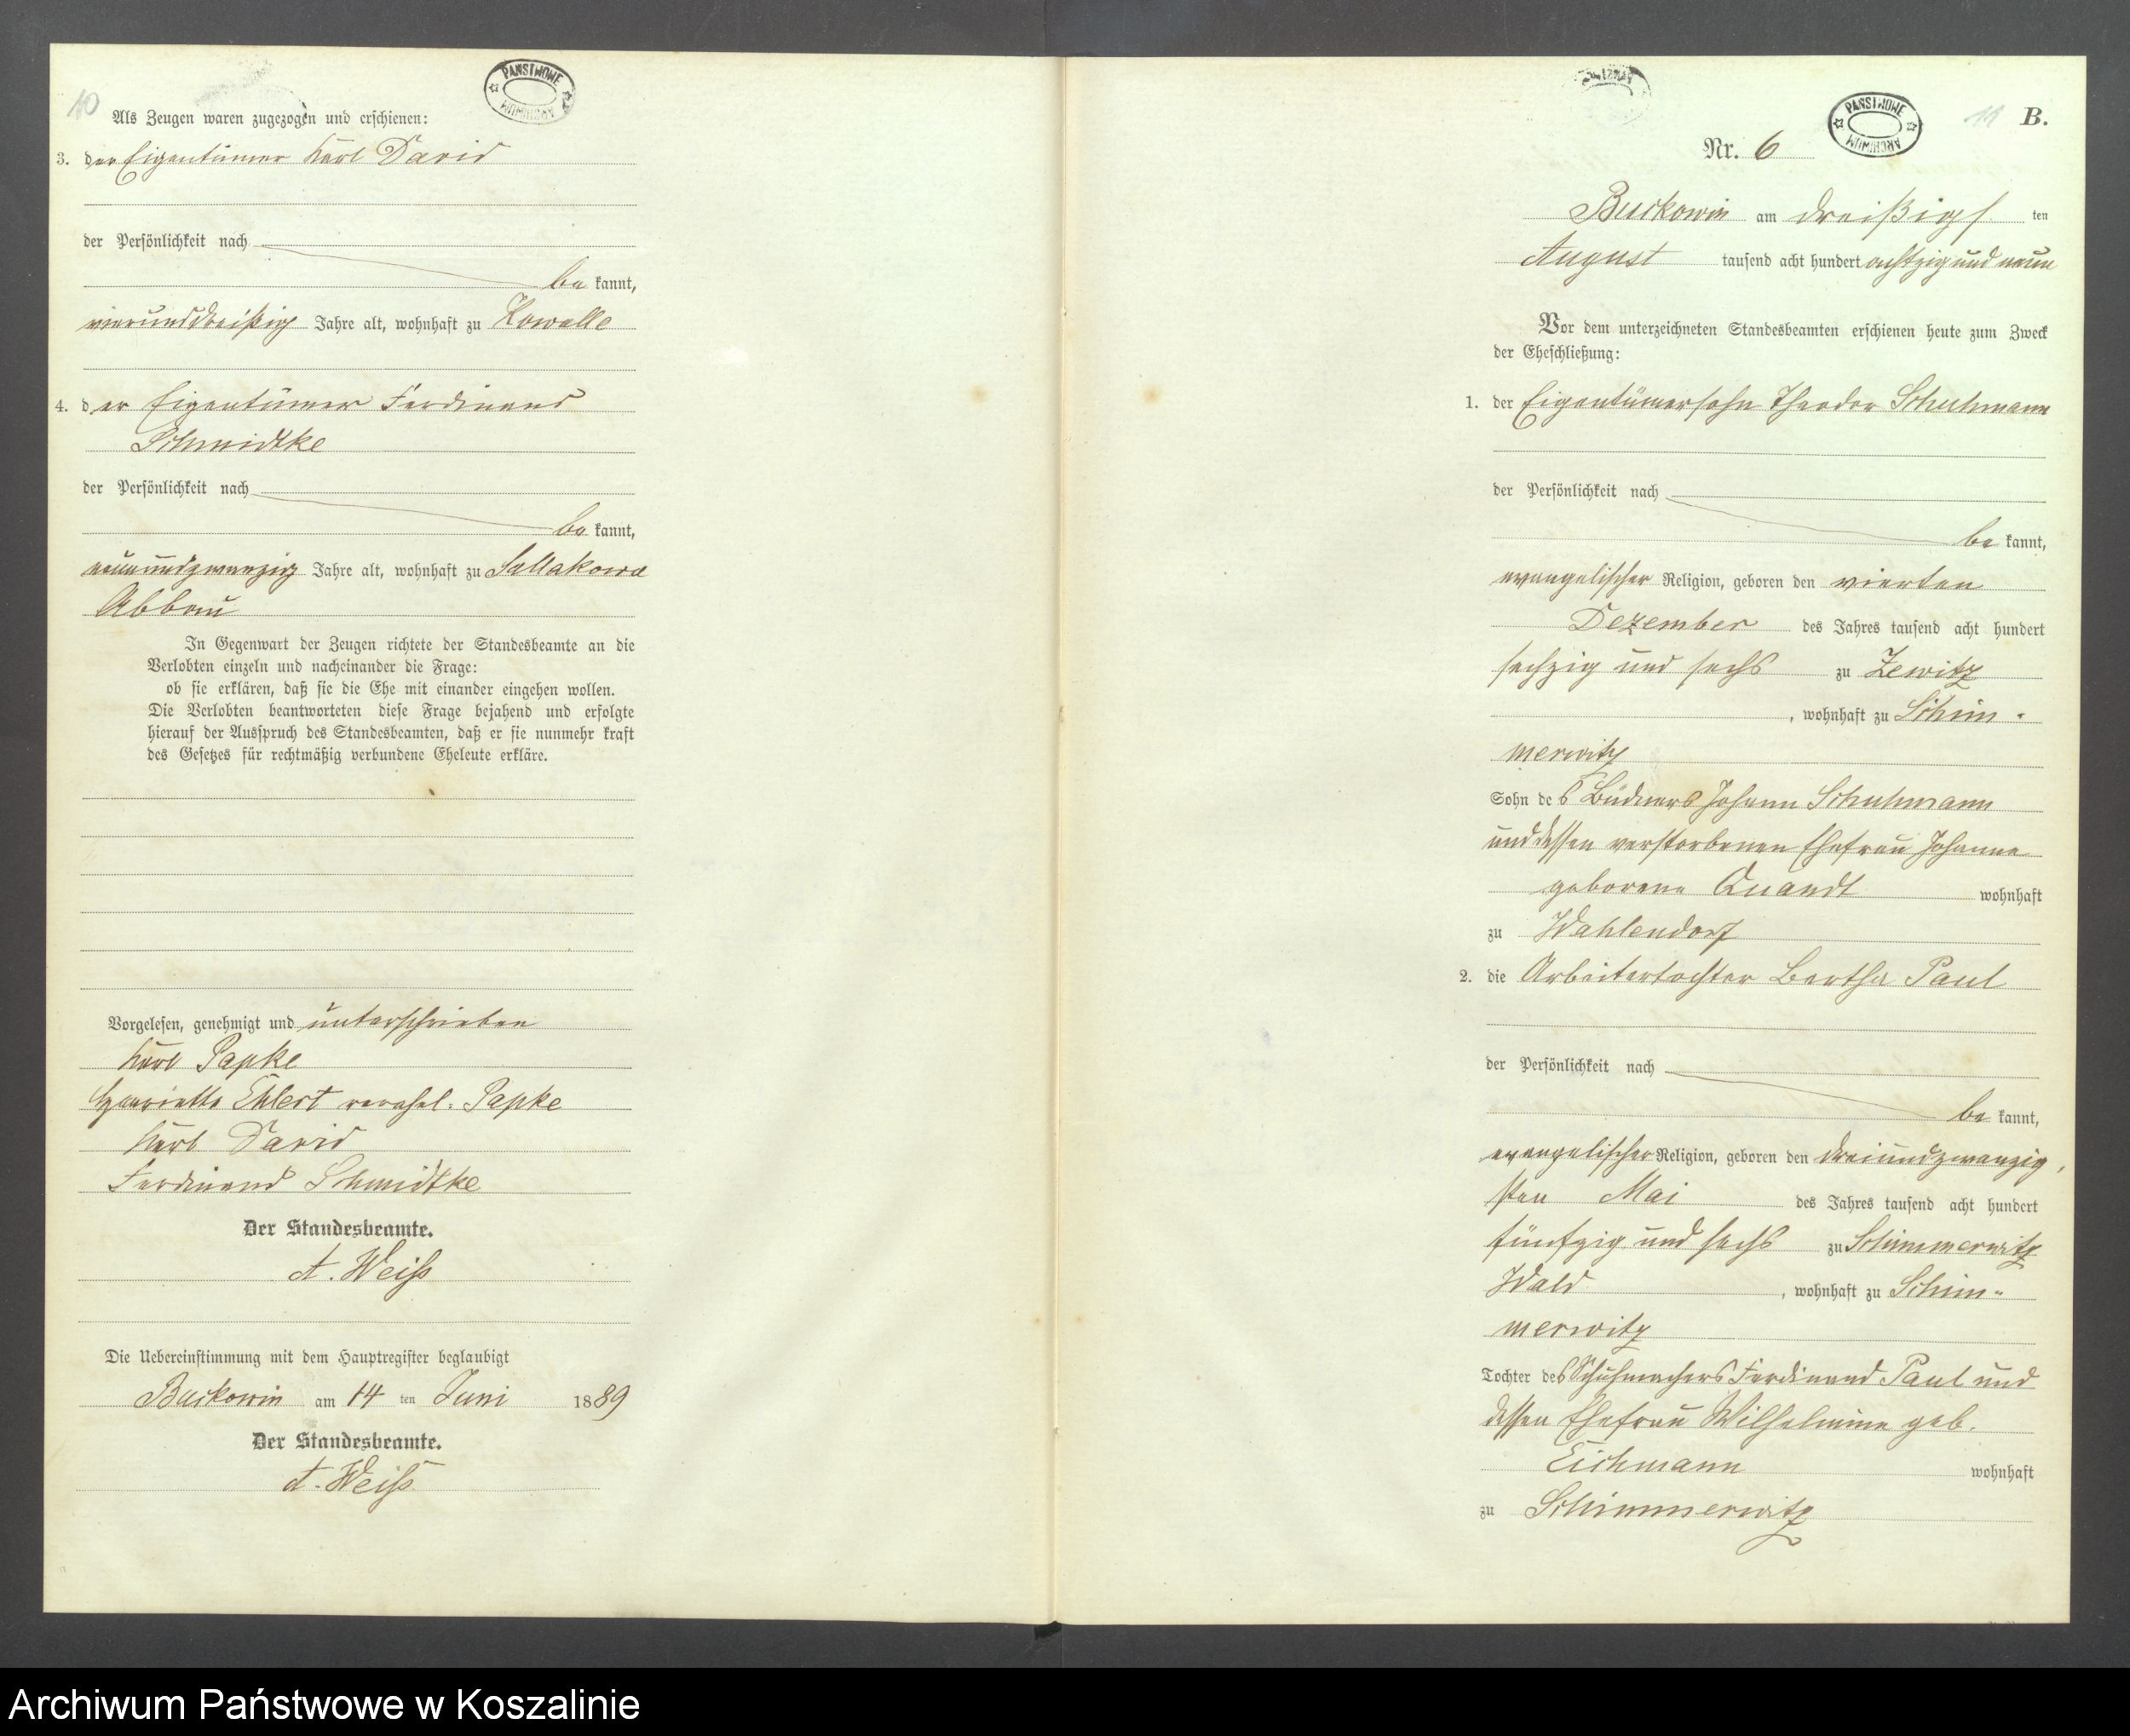 10
PAŃSTWOWE
ARCHIWUM
Als Zeugen waren zugezogen und erschienen:
3. der Eigentümer Karl David
der Persönlichkeit nach
be kannt,
vierunddreißig Jahre alt, wohnhaft zu Kowalle
4. der Eigentümer Ferdinand
Schmidtke
der Persönlichkeit nach
be kannt,
neunundzwanzig Jahre alt, wohnhaft zu Sallakowa
Abbau
In Gegenwart der Zeugen richtete der Standesbeamte an die
Verlobten einzeln und nacheinander die Frage:
ob sie erklären, daß sie die Ehe mit einander eingehen wollen.
Die Verlobten beantworteten diese Frage bejahend und erfolgte
hierauf der Ausspruch des Standesbeamten, daß er sie nunmehr kraft
des Gesetzes für rechtmäßig verbundene Eheleute erkläre.
Vorgelesen, genehmigt und unterschrieben
Karl Papke
Henriette Ehlert verehel. Papke
Karl David
Ferdinand Schmidtke
Der Standesbeamte.
A. Weiß
Die Uebereinstimmung mit dem Hauptregister beglaubigt
Buckowin am 14 ten Juni 1889
Der Standesbeamte.
A. Weiß
11 B.
PAŃSTWOWE
ARCHIWUM
Nr. 6
Buckowin am dreißigs ten
August tausend acht hundert achtzig und neun
Vor dem unterzeichneten Standesbeamten erschienen heute zum Zweck
der Eheschließung:
1. der Eigentümersohn Theodor Schuhmann
der Persönlichkeit nach
be kannt,
evangelischer Religion, geboren den vierten
Dezember des Jahres tausend acht hundert
sechzig und sechs zu Zewitz
, wohnhaft zu Schim-
merwitz
Sohn des Büdners Johann Schuhmann
und dessen verstorbenen Ehefrau Johanne
geborene Quandt wohnhaft
zu Wahlendorf
2. die Arbeitertochter Bertha Paul
der Persönlichkeit nach
be kannt,
evangelischer Religion, geboren den dreiundzwanzig-
sten Mai des Jahres tausend acht hundert
fünfzig und sechs zu Schimmerwitz
Wald , wohnhaft zu Schim-
merwitz
Tochter des Schuhmachers Ferdinand Paul und
dessen Ehefrau Wilhelmine geb.
Eichmann wohnhaft
zu Schimmerwitz
Archiwum Państwowe w Koszalinie